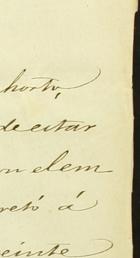 horto,
de estar
on elem
retó á
veinte